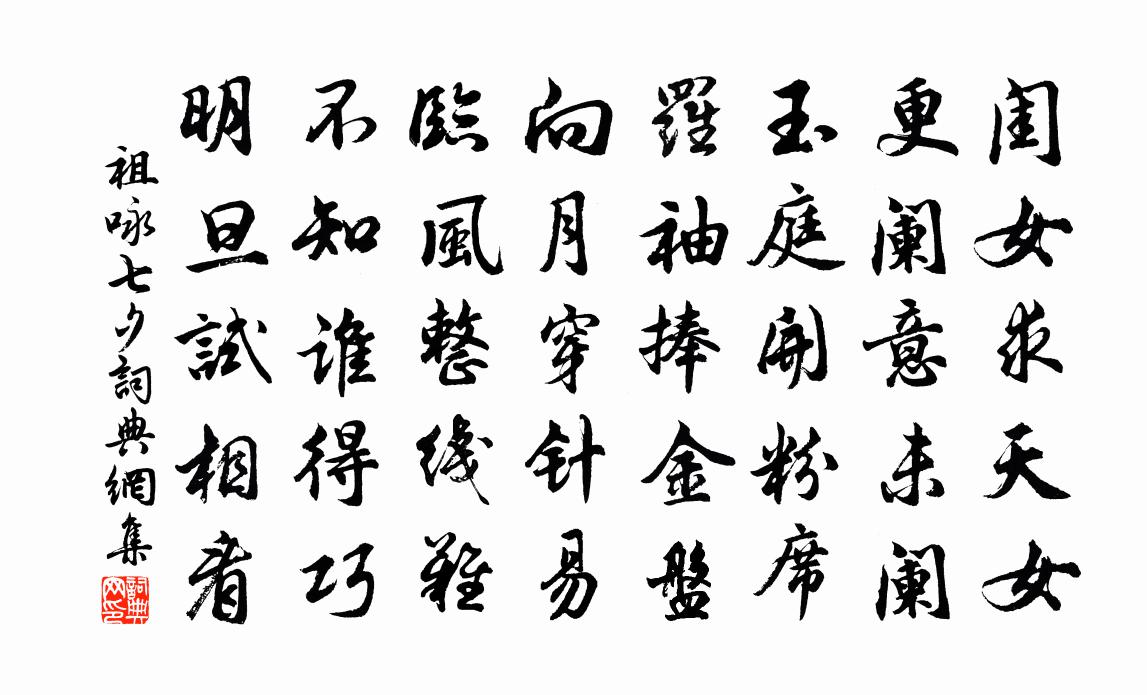 闺女求天女
更阑意未阑
玉庭開粉席
羅袖捧金盤
向月穿针易
臨風整线難
不知谁得巧
明旦試相看
祖咏七夕詞典網集
詞典网印